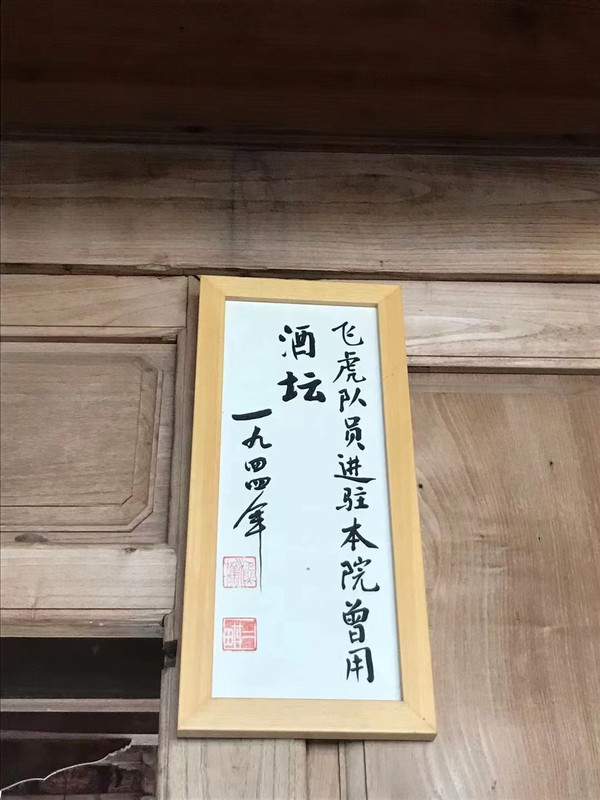 飞虎队员进驻本院曾用
酒坛
一九四四年